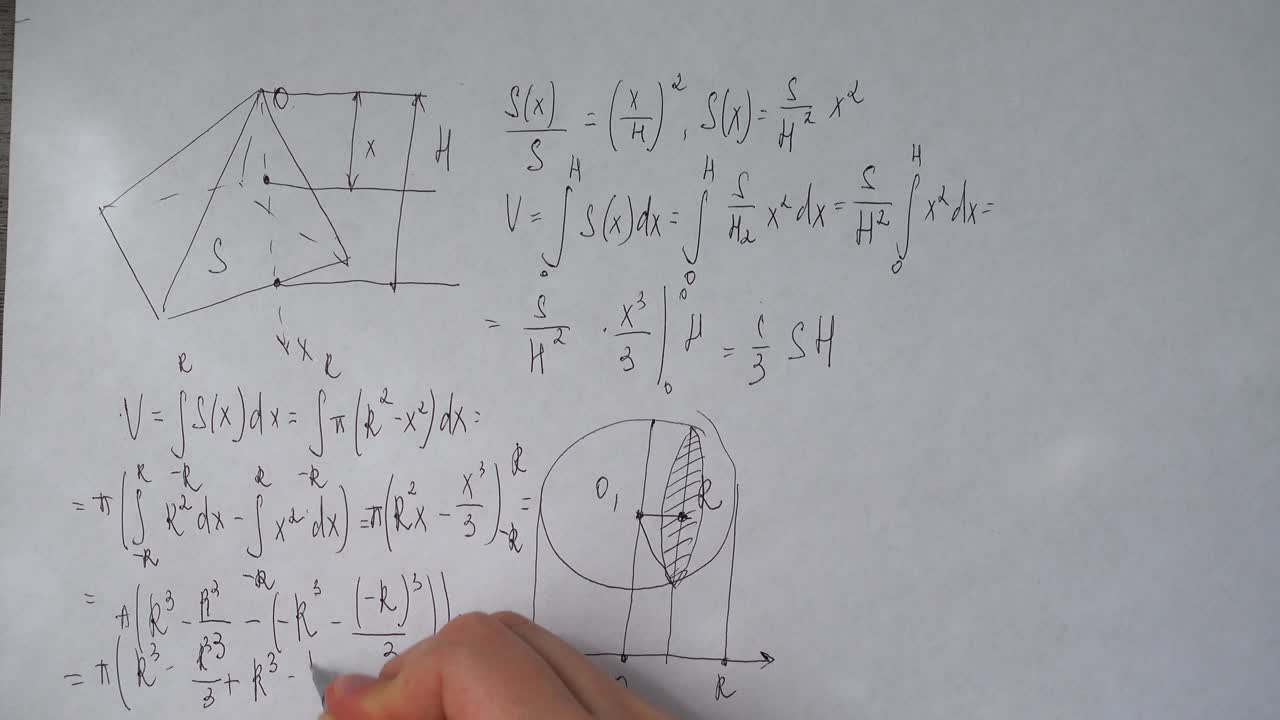 O
x
H
S
x
S(x)/S = (x/H)², S(x) = S/H² x²
V = ∫₀ᴴ S(x)dx = ∫₀ᴴ S/H₂ x²dx = S/H² ∫₀ᴴ x²dx =
= S/H² · x³/3 |₀ᴴ = 1/3 SH
V = ∫₋ᴿᴿ S(x)dx = ∫₋ᴿᴿ π(R² - x²)dx =
= π(∫₋ᴿᴿ R²dx - ∫₋ᴿᴿ x²dx) = π(R²x - x³/3)₋ᴿᴿ =
= π(R³ - R³/3 - (-R³ - (-R)³/3))
= π(R³ - R³/3 + R³ -
O₁
R
R